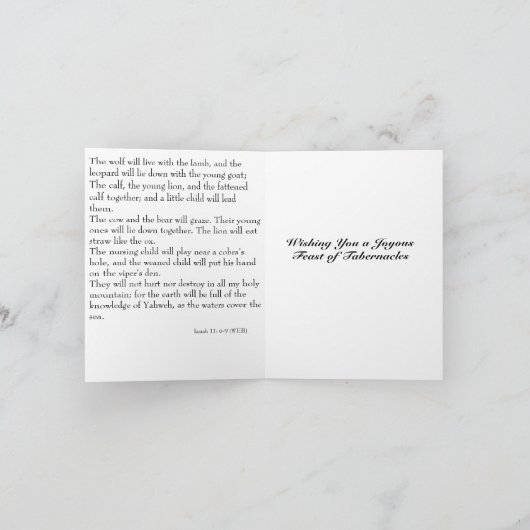 The wolf will live with the lamb, and the
leopard will lie down with the young goat;
The calf, the young lion, and the fattened
calf together; and a little child will lead
them.
The cow and the bear will graze. Their young
ones will lie down together. The lion will eat
straw like the ox.
The nursing child will play near a cobra's
hole, and the weaned child will put his hand
on the viper's den.
They will not hurt nor destroy in all my holy
mountain; for the earth will be full of the
knowledge of Yahweh, as the waters cover the
sea.
Isaiah 11: 6-9 (WEB)
Wishing You a Joyous
Feast of Tabernacles